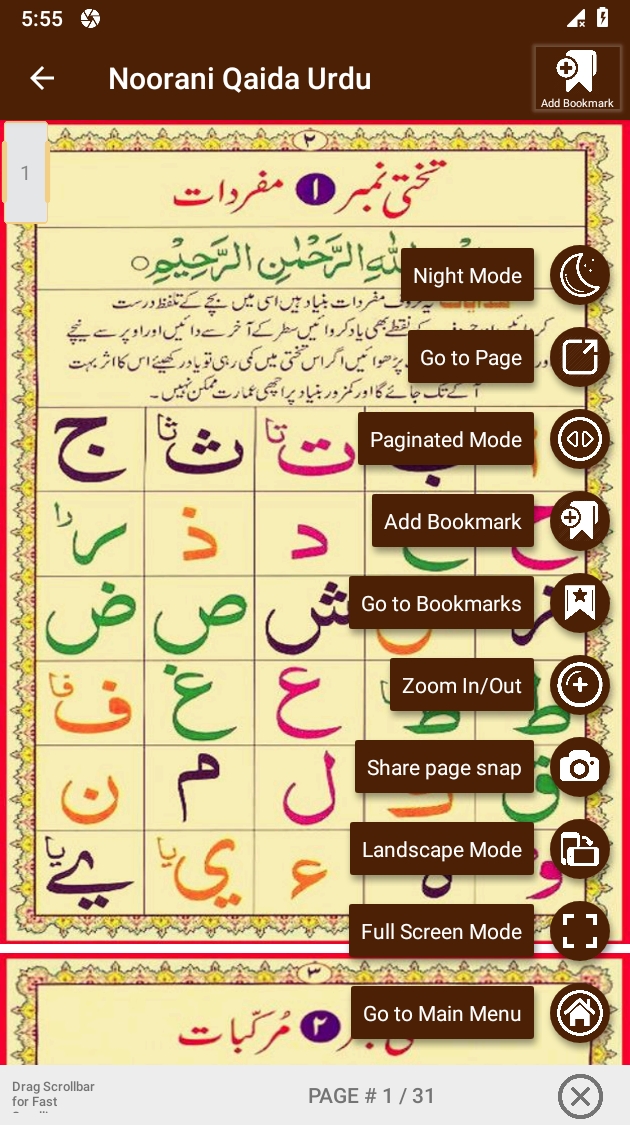 5:55
Noorani Qaida Urdu
Add Bookmark
1
۲
تختی نمبر ۱ مفردات
اللهِ الرَّحْمٰنِ الرَّحِیْمِ
حروف مفردات بنیاد ہیں اسی میں بچے کے تلفظ درست
کے نقطے بھی یاد کروائیں سطر کے آخر سے دائیں اور اوپر سے نیچے
پڑھوائیں اگر اس تختی میں کمی رہی تو یاد رکھیئے اس کا اثر بہت
آگے تک جائے گا اور کمزور بنیاد پر اچھی عمارت ممکن نہیں۔
Night Mode
Go to Page
ت تا ث ثا ج
Paginated Mode
د ذ ر را
Add Bookmark
ش ص ض
Go to Bookmarks
ط ظ ع غ ف فا
Zoom In/Out
ق ل م ن
Share page snap
و ہ ء ي یا ے یا
Landscape Mode
Full Screen Mode
۳
۲ مُرکّبات
Go to Main Menu
Drag Scrollbar
for Fast
PAGE # 1 / 31